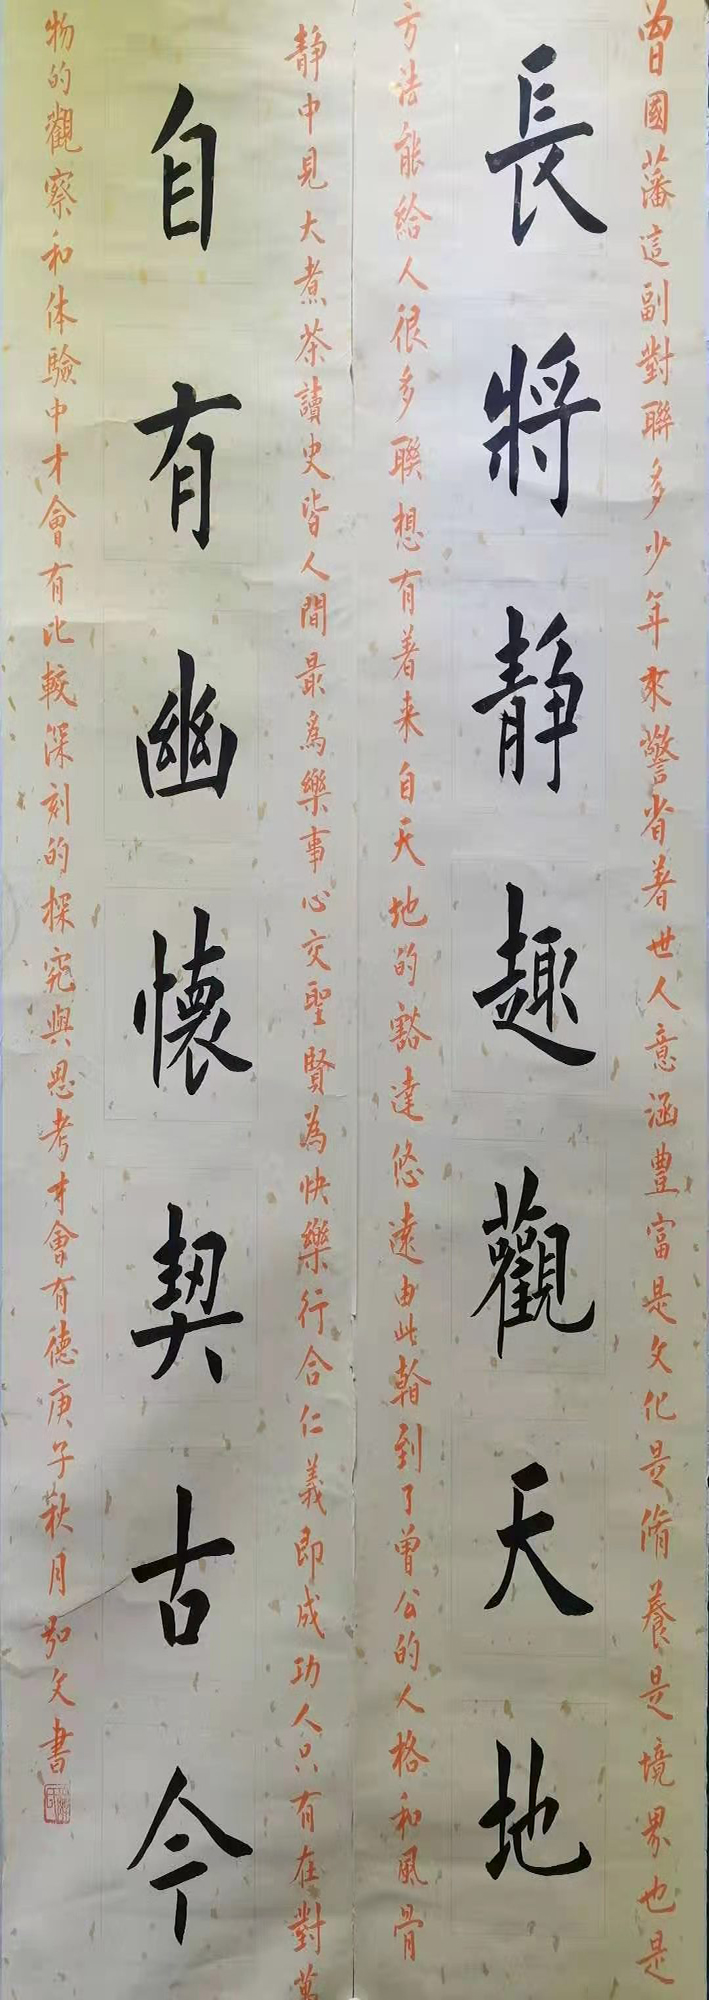 曾國藩這副對聯多少年來警省著世人意涵豊富是文化是脩養是境界也是
長將靜趣觀天地
方法能給人很多聯想有着来自天地的豁達悠遠由此翰到了曾公的人格和風骨
靜中見大煮茶讀史皆人間最為樂事心交聖賢為快樂行合仁義即成功人只有在對萬
自有幽懷契古今
物的觀察和体驗中才會有比較深刻的探究與思考才會有德庚子菻月弘文書